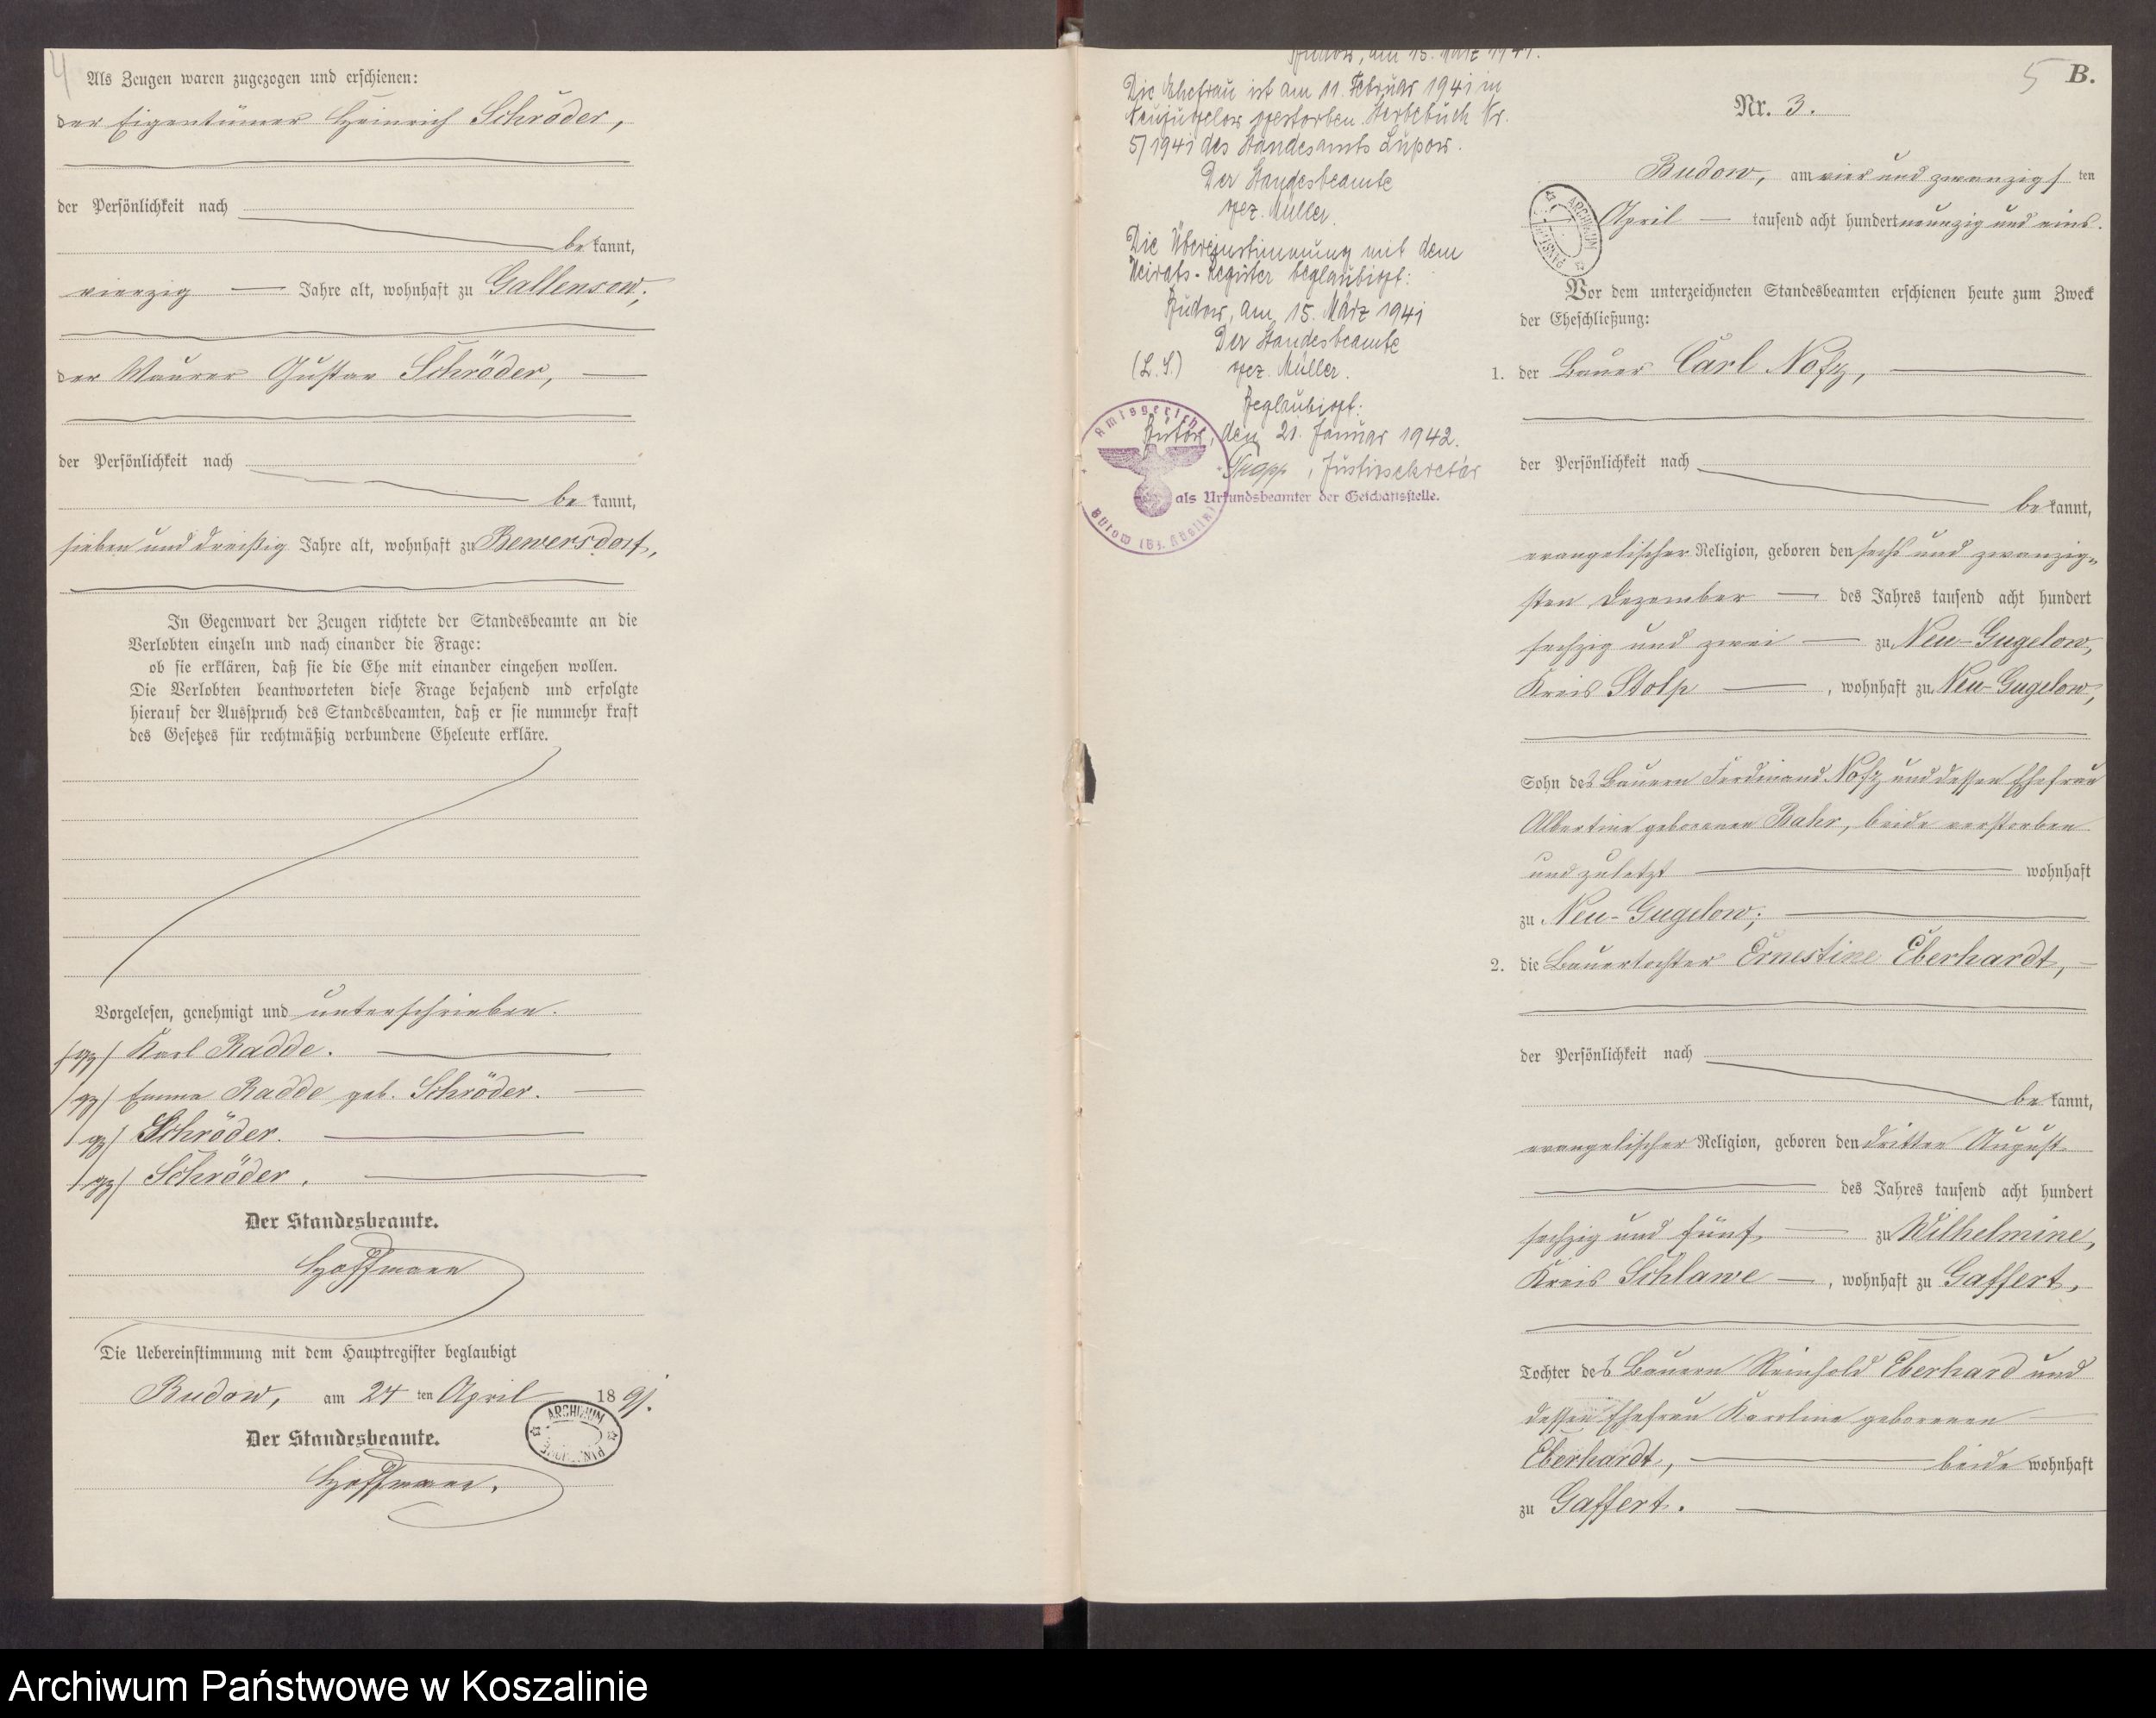 4
Als Zeugen waren zugezogen und erschienen:
der Eigentümer Heinrich Schröder,
der Persönlichkeit nach
be kannt,
vierzig Jahre alt, wohnhaft zu Gallensow;
der Maurer Gustav Schröder,
der Persönlichkeit nach
be kannt,
sieben und dreißig Jahre alt, wohnhaft zu Bewersdorf,
In Gegenwart der Zeugen richtete der Standesbeamte an die
Verlobten einzeln und nach einander die Frage:
ob sie erklären, daß sie die Ehe mit einander eingehen wollen.
Die Verlobten beantworteten diese Frage bejahend und erfolgte
hierauf der Ausspruch des Standesbeamten, daß er sie nunmehr kraft
des Gesetzes für rechtmäßig verbundene Eheleute erkläre.
Vorgelesen, genehmigt und unterschrieben.
/gz/ Karl Radde.
/gz/ Emma Radde geb. Schröder.
/gz/ Schröder.
/gz/ Schröder.
Der Standesbeamte.
Hoffmann
Die Uebereinstimmung mit dem Hauptregister beglaubigt
Budow, am 24 ten April 18 91.
Der Standesbeamte.
Hoffmann.
ARCHIWUM
Budow, am 15. März 1941.
Die Ehefrau ist am 11. Februar 1941 in
Neujugelow gestorben Sterbebuch Nr.
5/1941 des Standesamts Lupow.
Der Standesbeamte
gez. Müller.
Die Übereinstimmung mit dem
Heirats-Register beglaubigt:
Budow, am 15. März 1941
Der Standesbeamte
(L.S.) gez. Müller.
Beglaubigt:
Bütow, den 21. Januar 1942.
Justizsekretär
als Urkundsbeamter der Geschäftsstelle.
Amtsgericht
Bütow (Bz. Köslin)
5 B.
Nr. 3.
Budow, am vier und zwanzigs ten
April tausend acht hundert neunzig und eins.
ARCHIWUM
Vor dem unterzeichneten Standesbeamten erschienen heute zum Zweck
der Eheschließung:
1. der Bauer Carl Nofz,
der Persönlichkeit nach
be kannt,
evangelischer Religion, geboren den sechs und zwanzig-
sten Dezember des Jahres tausend acht hundert
sechzig und zwei zu Neu-Gugelow,
Kreis Stolp, wohnhaft zu Neu-Gugelow,
Sohn des Bauern Ferdinand Nofz und dessen Ehefrau
Albertine geborenen Bahr, beide verstorben
und zuletzt wohnhaft
zu Neu-Gugelow;
2. die Bauertochter Ernestine Eberhardt,
der Persönlichkeit nach
be kannt,
evangelischer Religion, geboren den dritten August
des Jahres tausend acht hundert
sechzig und fünf zu Wilhelmine,
Kreis Schlawe, wohnhaft zu Gaffert,
Tochter des Bauern Reinhold Eberhard und
dessen Ehefrau Karoline geborenen
Eberhardt, beide wohnhaft
zu Gaffert.
Archiwum Państwowe w Koszalinie